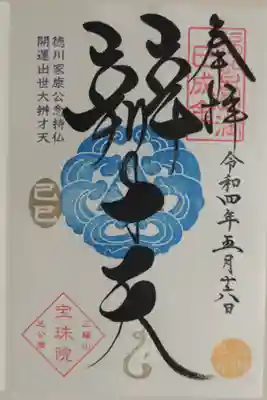 奉拝
令和四年五月十八日
辨才天
徳川家康公念持仏
開運出世大辨才天
己巳
三縁山
宝珠院
芝公園